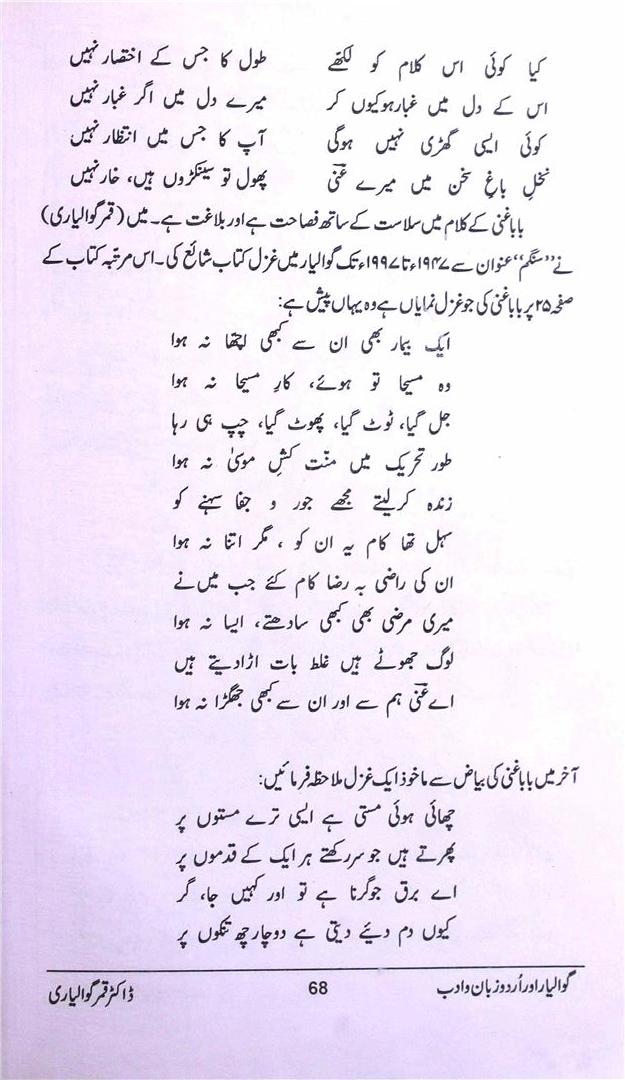 کیا کوئی اس کلام کو لکھے طول کا جس کے اختصار نہیں
اس کے دل میں غبار ہو کیوں کر میرے دل میں اگر غبار نہیں
کوئی ایسی گھڑی نہیں ہوگی آپ کا جس میں انتظار نہیں
نخلِ باغِ سخن میں میرے غنیؔ پھول تو سینکڑوں ہیں، خار نہیں
بابا غنی کے کلام میں سلاست کے ساتھ فصاحت ہے اور بلاغت ہے۔ میں (قمر گوالیاری)
نے ’’سنگم‘‘ عنوان سے ۱۹۴۷ء تا ۱۹۹۷ء تک گوالیار میں غزل کتاب شائع کی۔ اس مرتبہ کتاب کے
صفحہ ۲۵ پر بابا غنی کی جو غزل نمایاں ہے وہ یہاں پیش ہے:
ایک بیمار بھی ان سے کبھی اچھا نہ ہوا
وہ مسیحا تو ہوئے، کارِ مسیحا نہ ہوا
جل گیا، ٹوٹ گیا، پھوٹ گیا، چپ ہی رہا
طور تحریک میں منّت کشِ موسیٰ نہ ہوا
زندہ کر لیتے مجھے جور و جفا سہنے کو
سہل تھا کام یہ ان کو ، مگر اتنا نہ ہوا
ان کی راضی بہ رضا کام کئے جب میں نے
میری مرضی بھی کبھی سادھتے، ایسا نہ ہوا
لوگ جھوٹے ہیں غلط بات اڑا دیتے ہیں
اے غنیؔ ہم سے اور ان سے کبھی جھگڑا نہ ہوا
آخر میں بابا غنی کی بیاض سے ماخوذ ایک غزل ملاحظہ فرمائیں:
چھائی ہوئی مستی ہے ایسی ترے مستوں پر
پھرتے ہیں جو سر رکھتے ہر ایک کے قدموں پر
اے برق جو گرنا ہے تو اور کہیں جا، گر
کیوں دم دیئے دیتی ہے دو چار چھ تنکوں پر
گوالیار اور اُردو زبان و ادب 68 ڈاکٹر قمر گوالیاری